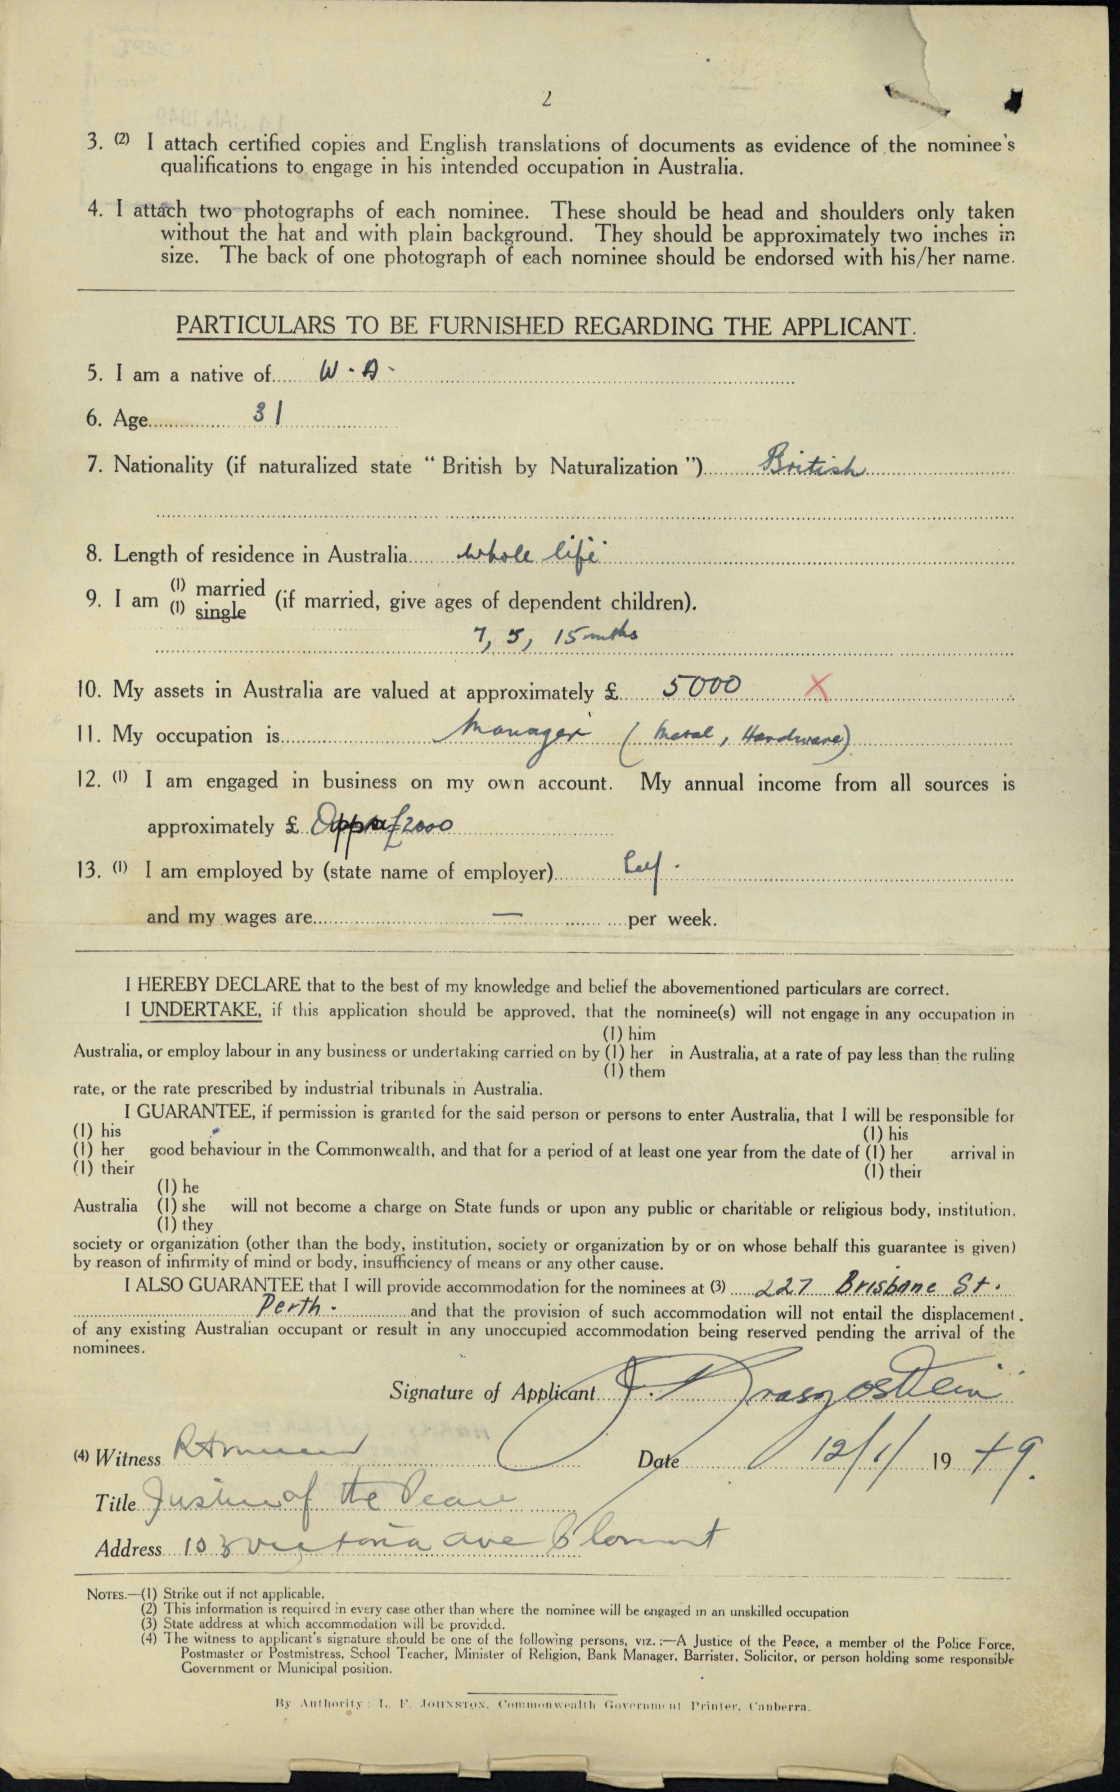 2
3. (2) I attach certified copies and English translations of documents as evidence of the nominee's
qualifications to engage in his intended occupation in Australia.
4. I attach two photographs of each nominee. These should be head and shoulders only taken
without the hat and with plain background. They should be approximately two inches in
size. The back of one photograph of each nominee should be endorsed with his/her name.
PARTICULARS TO BE FURNISHED REGARDING THE APPLICANT.
5. I am a native of W. A.
6. Age 31
7. Nationality (if naturalized state "British by Naturalization") British
8. Length of residence in Australia whole life
9. I am (1) married
(1) single (if married, give ages of dependent children).
7, 5, 15 mnths
10. My assets in Australia are valued at approximately £ 5000 X
11. My occupation is Manager (Metal, Hardware)
12. (1) I am engaged in business on my own account. My annual income from all sources is
approximately £ Approx £2000
13. (1) I am employed by (state name of employer) Self.
and my wages are — per week.
I HEREBY DECLARE that to the best of my knowledge and belief the abovementioned particulars are correct.
I UNDERTAKE, if this application should be approved, that the nominee(s) will not engage in any occupation in
(1) him
Australia, or employ labour in any business or undertaking carried on by (1) her in Australia, at a rate of pay less than the ruling
(1) them
rate, or the rate prescribed by industrial tribunals in Australia.
I GUARANTEE, if permission is granted for the said person or persons to enter Australia, that I will be responsible for
(1) his (1) his
(1) her good behaviour in the Commonwealth, and that for a period of at least one year from the date of (1) her arrival in
(1) their (1) their
(1) he
Australia (1) she will not become a charge on State funds or upon any public or charitable or religious body, institution,
(1) they
society or organization (other than the body, institution, society or organization by or on whose behalf this guarantee is given)
by reason of infirmity of mind or body, insufficiency of means or any other cause.
I ALSO GUARANTEE that I will provide accommodation for the nominees at (3) 227 Brisbane St.
Perth. and that the provision of such accommodation will not entail the displacement
of any existing Australian occupant or result in any unoccupied accommodation being reserved pending the arrival of the
nominees.
Signature of Applicant J. Krasnostein
(4) Witness Date 12/1/ 19 49.
Title Justice of the Peace
Address 103 Victoria Ave Claremont
NOTES.—(1) Strike out if not applicable.
(2) This information is required in every case other than where the nominee will be engaged in an unskilled occupation
(3) State address at which accommodation will be provided.
(4) The witness to applicant's signature should be one of the following persons, viz.:—A Justice of the Peace, a member of the Police Force,
Postmaster or Postmistress, School Teacher, Minister of Religion, Bank Manager, Barrister, Solicitor, or person holding some responsible
Government or Municipal position.
By Authority: L. F. JOHNSTON, Commonwealth Government Printer, Canberra.